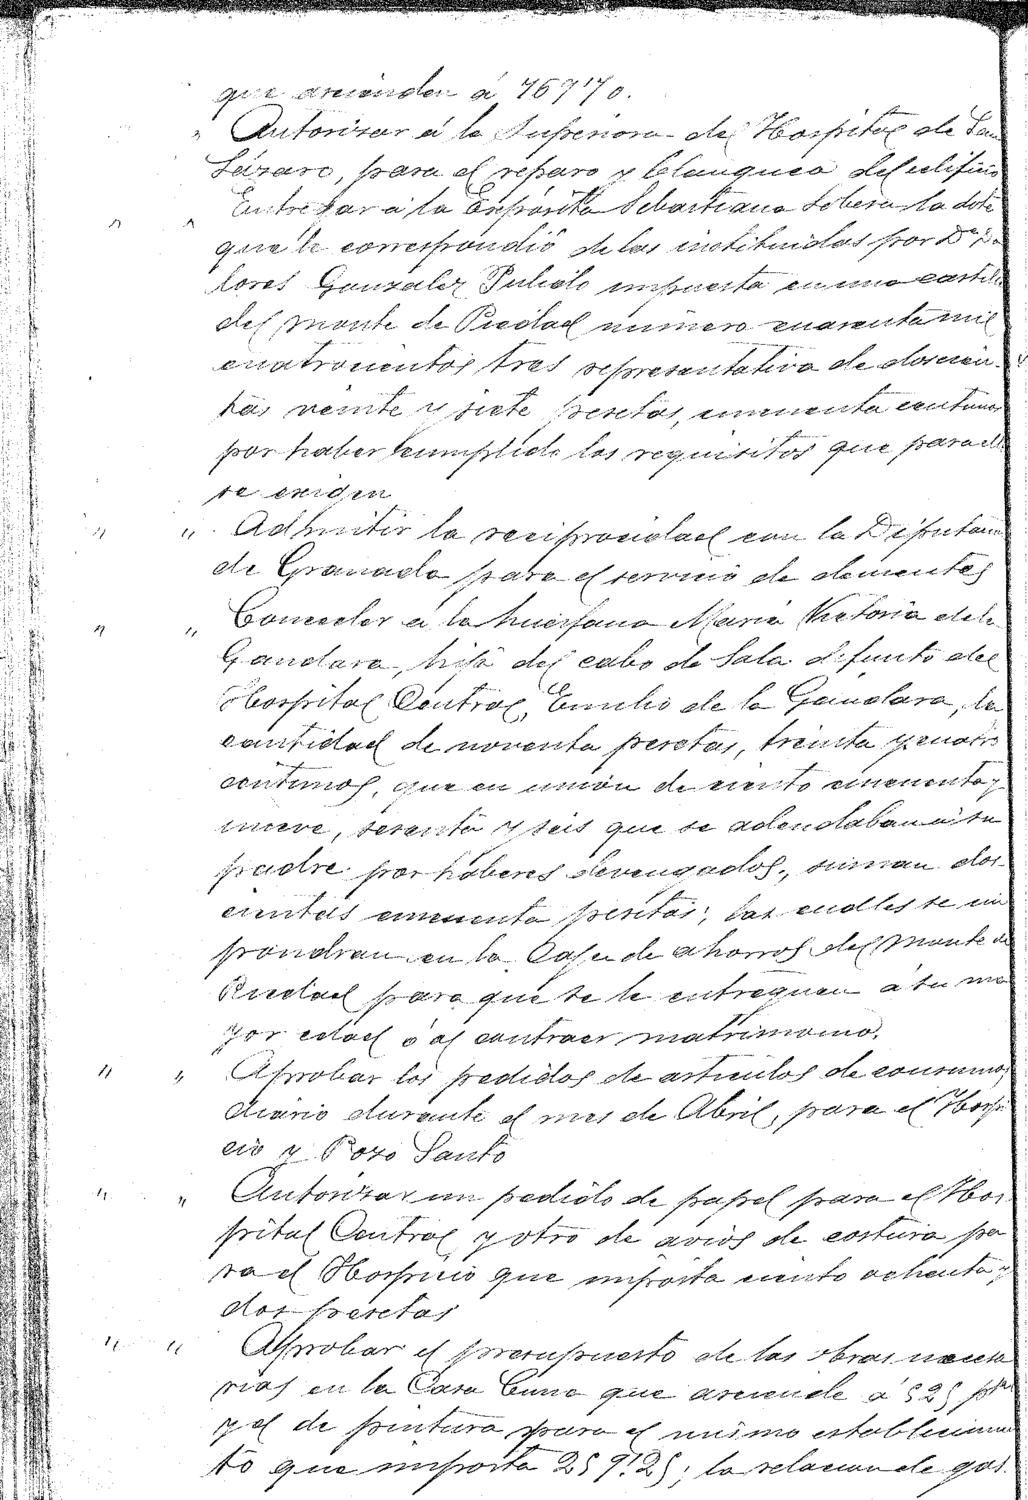 que ascienden á 769'70.
" Autorizar á la Superiora del Hospital de San
Lázaro, para el reparo y blanqueo del edificio
" " Entregar á la Expósita Sebastiana Sobera la dote
que le correspondió de las instituidas por Dª Do
lores Gonzalez Pulido impuesta en una cartilla
del monte de Piedad número cuarenta mil
cuatrocientos tres representativa de doscien-
tas veinte y siete pesetas, cincuenta centimos
por haber cumplido los requisitos que para ello
se exigen
" " Admitir la reciprocidad con la Diputacion
de Granada para el servicio de dementes
" " Conceder á la huerfana Maria Victoria de la
Gandara, hija del cabo de Sala difunto del
Hospital Central, Emilio de la Gandara, la
cantidad de noventa pesetas, treinta y cuatro
centimos, que en union de ciento cincuenta y
nueve, sesenta y seis que se adeudaban á su
padre por haberes devengados, suman dos-
cientas cincuenta pesetas; las cuales se im
pondran en la Caja de ahorros del Monte de
Piedad para que se le entreguen á su ma
yor edad ó al contraer matrimonio.
" " Aprobar los pedidos de articulos de consumos
diario durante el mes de Abril, para el Hospi
cio y Pozo Santo
" " Autorizar un pedido de papel para el Hos-
pital Central y otro de avios de costura pa
ra el Hospicio que importa ciento ochenta y
dos pesetas
" " Aprobar el presupuesto de las obras necesa
rias en la Casa Cuna que asciende á 525 ptas
y el de pintura para el mismo establecimien
to que importa 259'25; la relacion de gas-